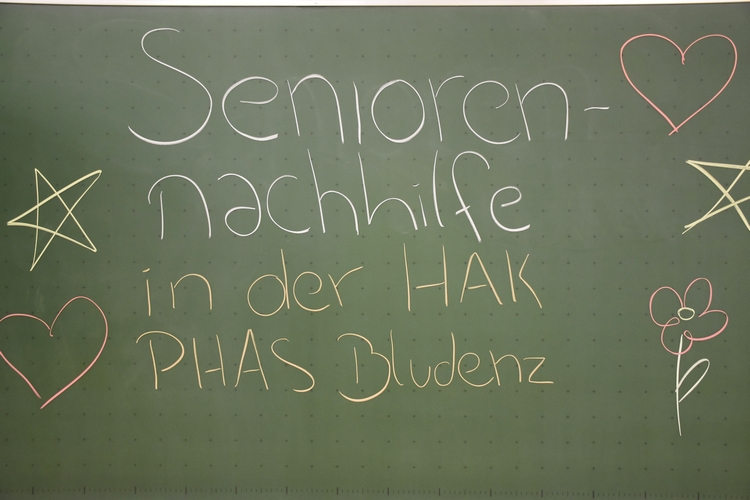 Senioren-
nachhilfe
in der HAK
PHAS Bludenz